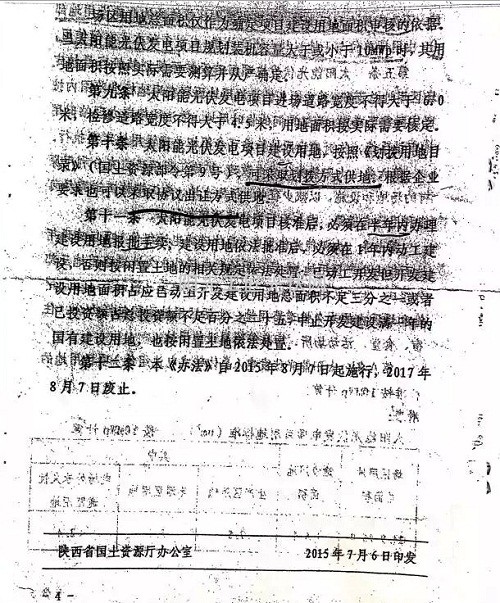 场区用地总面积仅作为确定项目建设用地面积审核的依据。
且太阳能光伏发电项目规划装机容量大于或小于10MWp时，其用
地面积按照实际需要测算并从严确定。
第九条 太阳能光伏发电项目进场道路宽度不得大于6.0
米，检修道路宽度不得大于4.5米，用地面积按实际需要核定。
第十条 太阳能光伏发电项目建设用地，按照《划拨用地目
录》（国土资源部令第9号）可采取划拨方式供地。根据企业
要求也可以采取协议出让方式供地。
第十一条 太阳能光伏发电项目核准后，必须在半年内办理
建设用地报批手续，建设用地依法批准后，必须在1年内动工建
设，否则按闲置土地的相关规定依法处置。已动工开发但开发建
设用地面积占应当动工开发建设用地总面积不足三分之一或者
已投资额占总投资额不足百分之二十五，中止开发建设满一年的
国有建设用地，也按闲置土地依法处置。
第十二条 本《办法》自2015年8月7日起施行，2017年
8月7日废止。
陕西省国土资源厅办公室 2015年7月6日印发